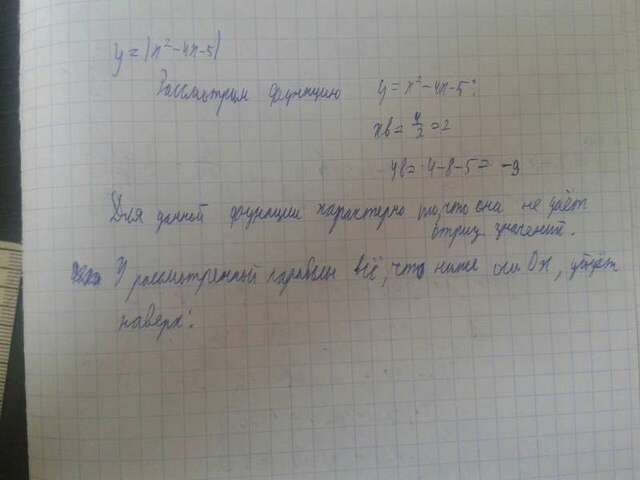 y = |x²-4x-5|
Рассмотрим функцию y = x²-4x-5:
xв = 4/2 = 2
yв = 4-8-5 = -9
Для данной функции характерно то, что она не даёт
отриц значений.
У рассмотренной параболы всё, что ниже оси Ox, уйдёт
наверх: